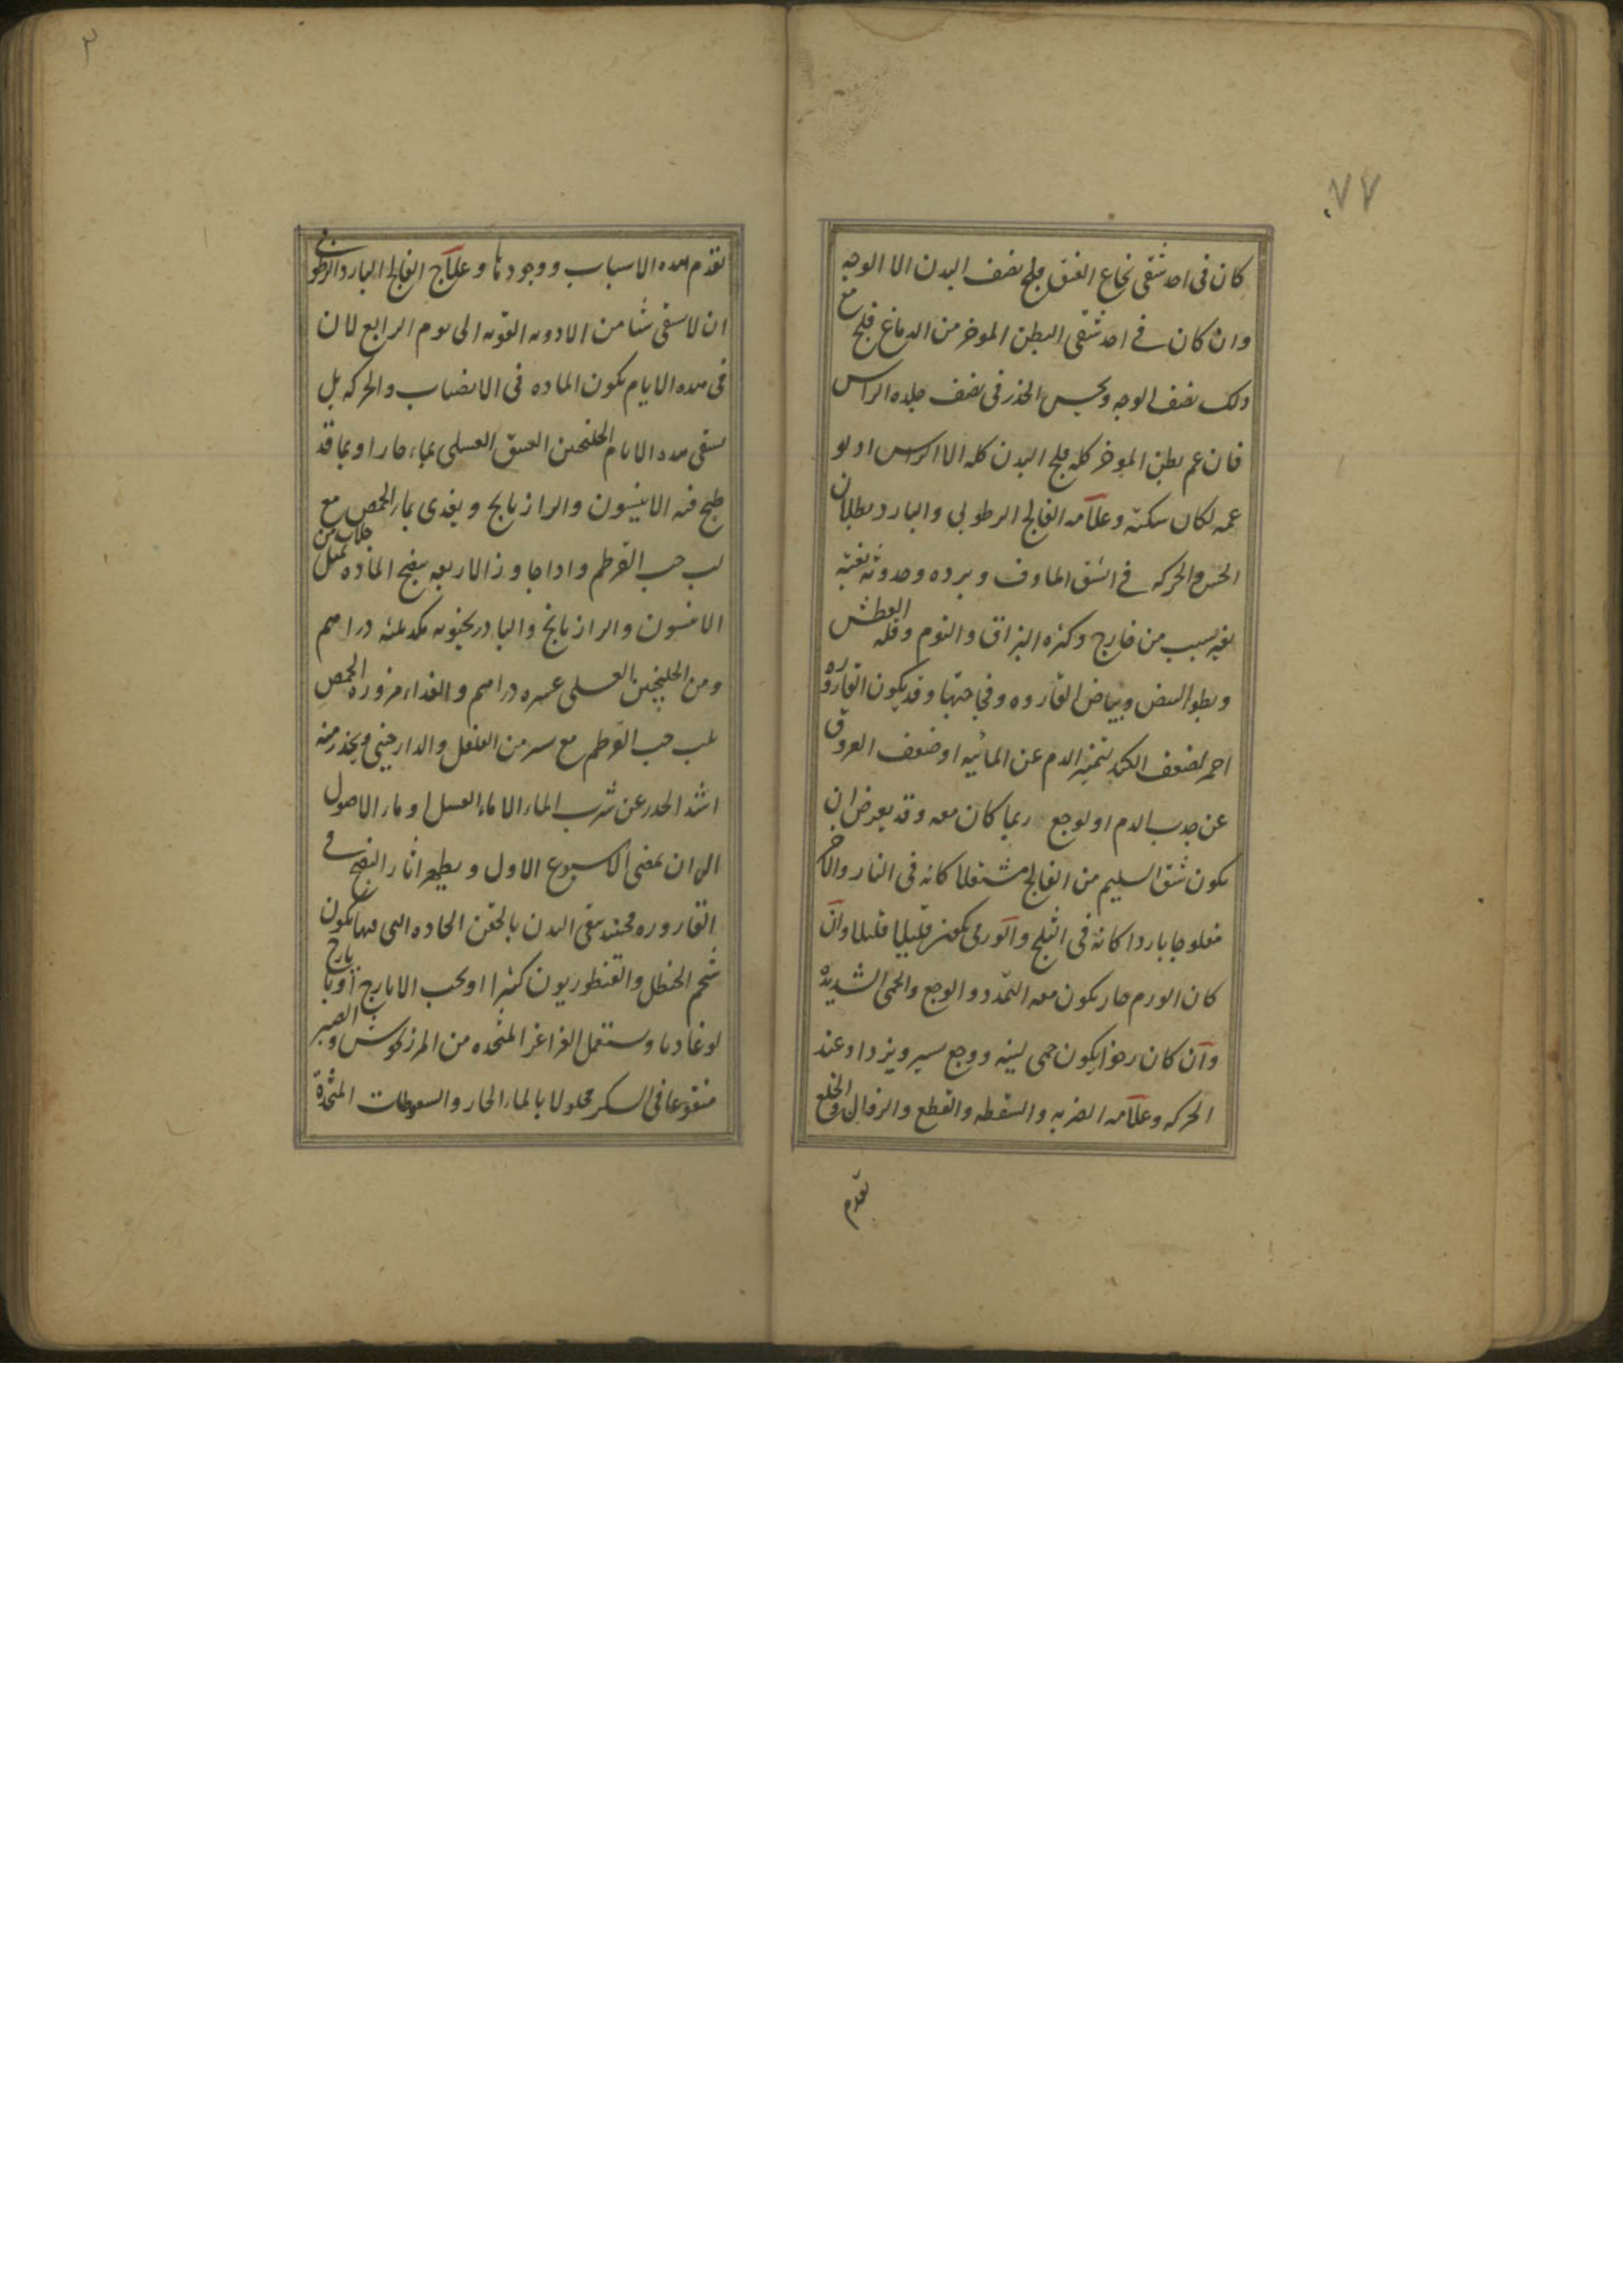 ٧٧
كان فى احد شقى نخاع العنق فلج نصف البدن الا الوجه
وان كان فى احد شقى البطن الموخر من الدماغ فلج مع
ذلك نصف الوجه ويحس الخدر فى نصف جلده الراس
فان عم بطن الموخر كله فلج البدن كله الا الراس او لو
عمه لكان سكته وعلامه الفالج الرطوبي والبارد بطلان
الحس والحركه فى الشق الماوف وبرده وحدوثه بغته
بغير سبب من خارج وكثره البزاق والنوم وقله العطش
وبطو النبض وبياض القاروره وفجاجتها وقد يكون القاروره
احمر لضعف الكبد لتميز الدم عن المائيه او ضعف العروق
عن جذب الدم او لوجع ربما كان معه وقد يعرض ان
يكون شق السليم من الفالج مشتعلا كانه فى النار والاخر
مفلوجا باردا كانه فى الثلج والورمى يكون قليلا قليلا وان
كان الورم حار يكون معه التمدد والوجع والحمى الشديده
وان كان رخوا يكون حمى لينه ووجع يسير ويزداد عند
الحركه وعلامه الضربه والسقطه والقطع والزوال والخلع
تقدم
تقدم هذه الاسباب ووجودها وعلاج الفالج البارد الرطوبى
ان لا يسقى شيا من الادويه القويه الى يوم الرابع لان
فى هذه الايام يكون الماده فى الانصباب والحركه بل
يسقى هذه الايام الجلنجبين العتيق العسلى بماء حار او بما قد
طبخ فيه الانيسون والرازيانج ويغذى بماء الحمص مع
لب حب القرطم واذا جاوز الاربعه ينضج الماده بمثل جلاب من
الانيسون والرازيانج والبادرنجبويه مكد ثلثه دراهم
ومن الجلنجبين العسلى عشره دراهم والغذاء مزوره الحمص
بلب حب القرطم مع يسير من الفلفل والدارچينى ويحذر منه
اشد الحذر عن شرب الماء الا ماء العسل او ماء الاصول
الى ان يمضى الاسبوع الاول ويظهر اثار النضج فى
القاروره فحينئذ ينقى البدن بالحقن الحاده التى فيها يكون
شحم الحنظل والقنطوريون كثيرا او بحب الايارج او بايارج
لوغاديا ويستعمل الغراغر المتخذه من المرزنكوش والصبر
منقوعا فى السكر محلولا بالماء الحار والسعوطات المتخذة